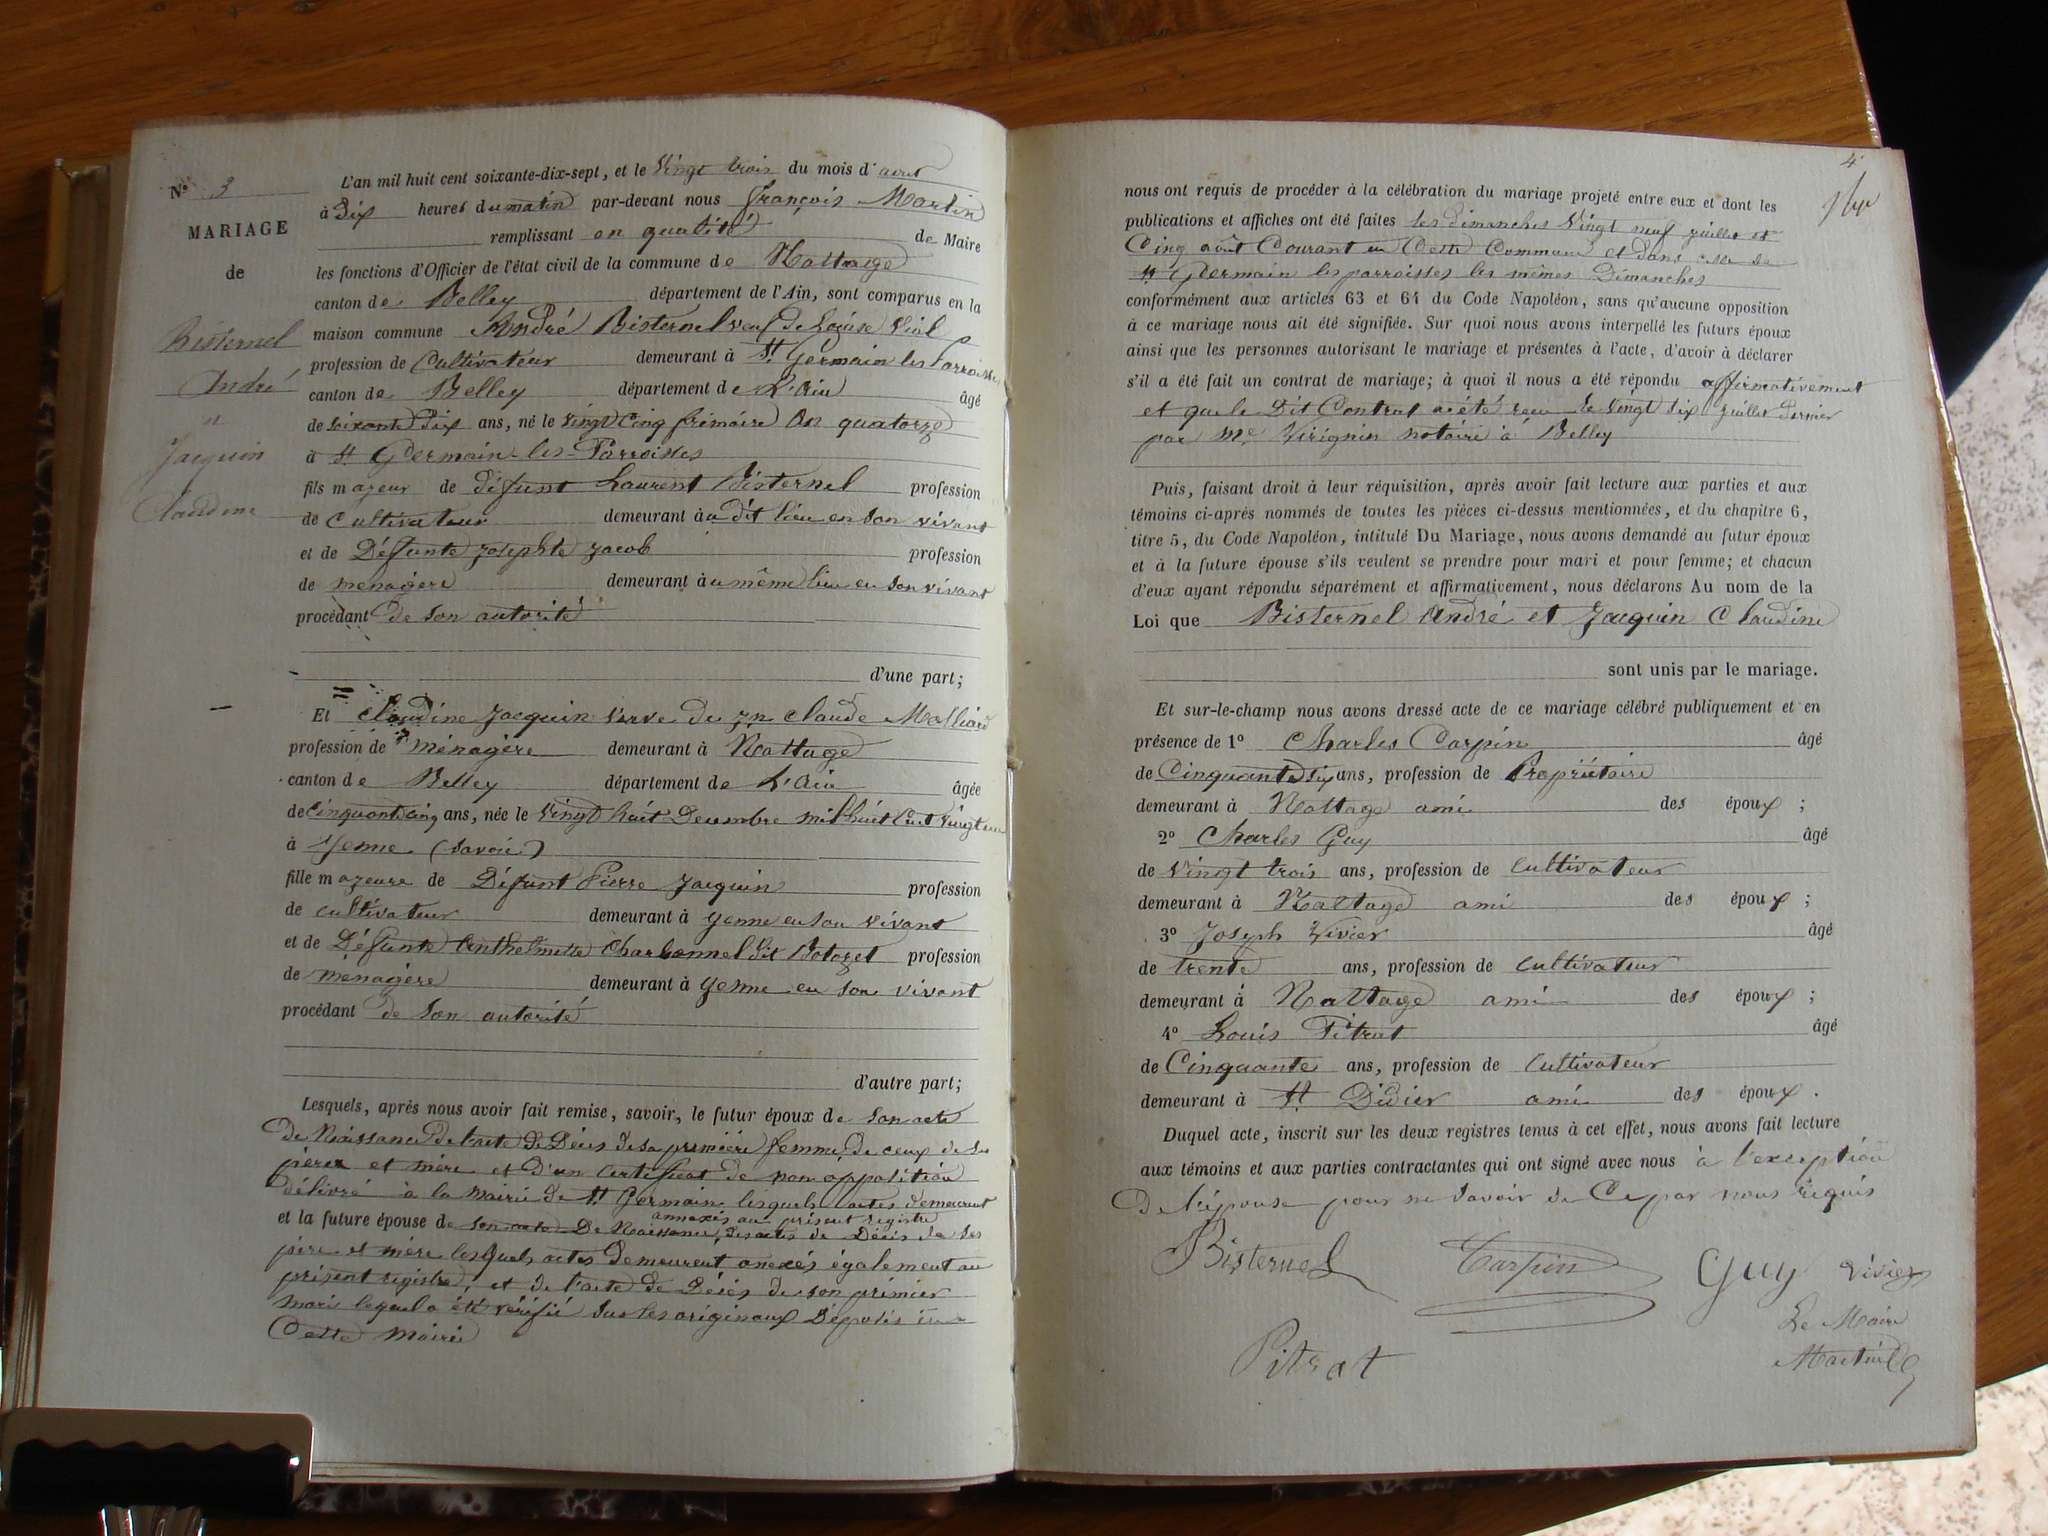 N° 3
MARIAGE
de
Bisternel
André
n
Jacquin
Claudine
L'an mil huit cent soixante-dix-sept, et le Vingt trois du mois d'aout
à Dix heures du matin par-devant nous François Martin
remplissant en qualité de Maire
les fonctions d'Officier de l'état civil de la commune de Nattage
canton de Belley département de l'Ain, sont comparus en la
maison commune André Bisternel veuf de Louise Vial
profession de Cultivateur demeurant à St Germain les Parroisses
canton de Belley département de L'Ain âgé
de soixante Dix ans, né le vingt Cinq frimaire an quatorze
à St Germain les-Parroisses
fils majeur de défunt Laurent Bisternel profession
de Cultivateur demeurant à u dit lieu en son vivant
et de Défunte Josephte Jacob profession
de menagère demeurant à u même lieu en son vivant
procédant de son autorité
d'une part;
Et Claudine Jacquin Veuve de Jn Claude Malliard
profession de ménagère demeurant à Nattage
canton de Belley département de L'Ain âgée
de Cinquante cinq ans, née le Vingt huit Decembre mil huit Cent Vingt un
à Yenne (Savoie)
fille majeure de Défunt Pierre Jacquin profession
de cultivateur demeurant à Yenne en son vivant
et de Défunte Anthelmette Charbonnel dit Botozel profession
de menagère demeurant à Yenne en son vivant
procédant de son autorité
d'autre part;
Lesquels, après nous avoir fait remise, savoir, le futur époux de son acte
de Naissance de l'acte de Décès de sa première femme, de ceux de ses
père et mère et d'un certificat de non opposition
délivré à la mairie de St Germain lesquels actes demeurent
annexés au présent registre
et la future épouse de son acte De Naissance, des actes de Décès de ses
père et mère lesquels actes demeurent anexés également au
présent registre, et de l'acte de Décès de son prémier
mari lequel a été vérifié sur les originaux Déposés en
Cette mairie
4
nous ont requis de procéder à la célébration du mariage projeté entre eux et dont les
publications et affiches ont été faites les dimanches Vingt neuf juillet et
Cinq août Courant en Cette Commune et dans celle de
St Germain les parroisses les mêmes Dimanches
conformément aux articles 63 et 64 du Code Napoléon, sans qu'aucune opposition
à ce mariage nous ait été signifiée. Sur quoi nous avons interpellé les futurs époux
ainsi que les personnes autorisant le mariage et présentes à l'acte, d'avoir à déclarer
s'il a été fait un contrat de mariage; à quoi il nous a été répondu affirmativement
et que le Dit Contrat a été recu le vingt six juillet dernier
par Me Virignin notaire à Belley
Puis, faisant droit à leur réquisition, après avoir fait lecture aux parties et aux
témoins ci-après nommés de toutes les pièces ci-dessus mentionnées, et du chapitre 6,
titre 5, du Code Napoléon, intitulé Du Mariage, nous avons demandé au futur époux
et à la future épouse s'ils veulent se prendre pour mari et pour femme; et chacun
d'eux ayant répondu séparément et affirmativement, nous déclarons Au nom de la
Loi que Bisternel André et Jacquin Claudine
sont unis par le mariage.
Et sur-le-champ nous avons dressé acte de ce mariage célébré publiquement et en
présence de 1° Charles Carpin âgé
de Cinquante six ans, profession de Propriétaire
demeurant à Nattage ami des époux;
2° Charles Guy âgé
de Vingt trois ans, profession de cultivateur
demeurant à Nattage ami des époux;
3° Joseph Vivier âgé
de trente ans, profession de cultivateur
demeurant à Nattage ami des époux;
4° Louis Pitrat âgé
de Cinquante ans, profession de cultivateur
demeurant à St Didier ami des époux.
Duquel acte, inscrit sur les deux registres tenus à cet effet, nous avons fait lecture
aux témoins et aux parties contractantes qui ont signé avec nous à l'exception
De l'épouse pour ne savoir de Ce par nous requis
Bisternel Carpin Guy Vivier
Le Maire
Pitrat Martin